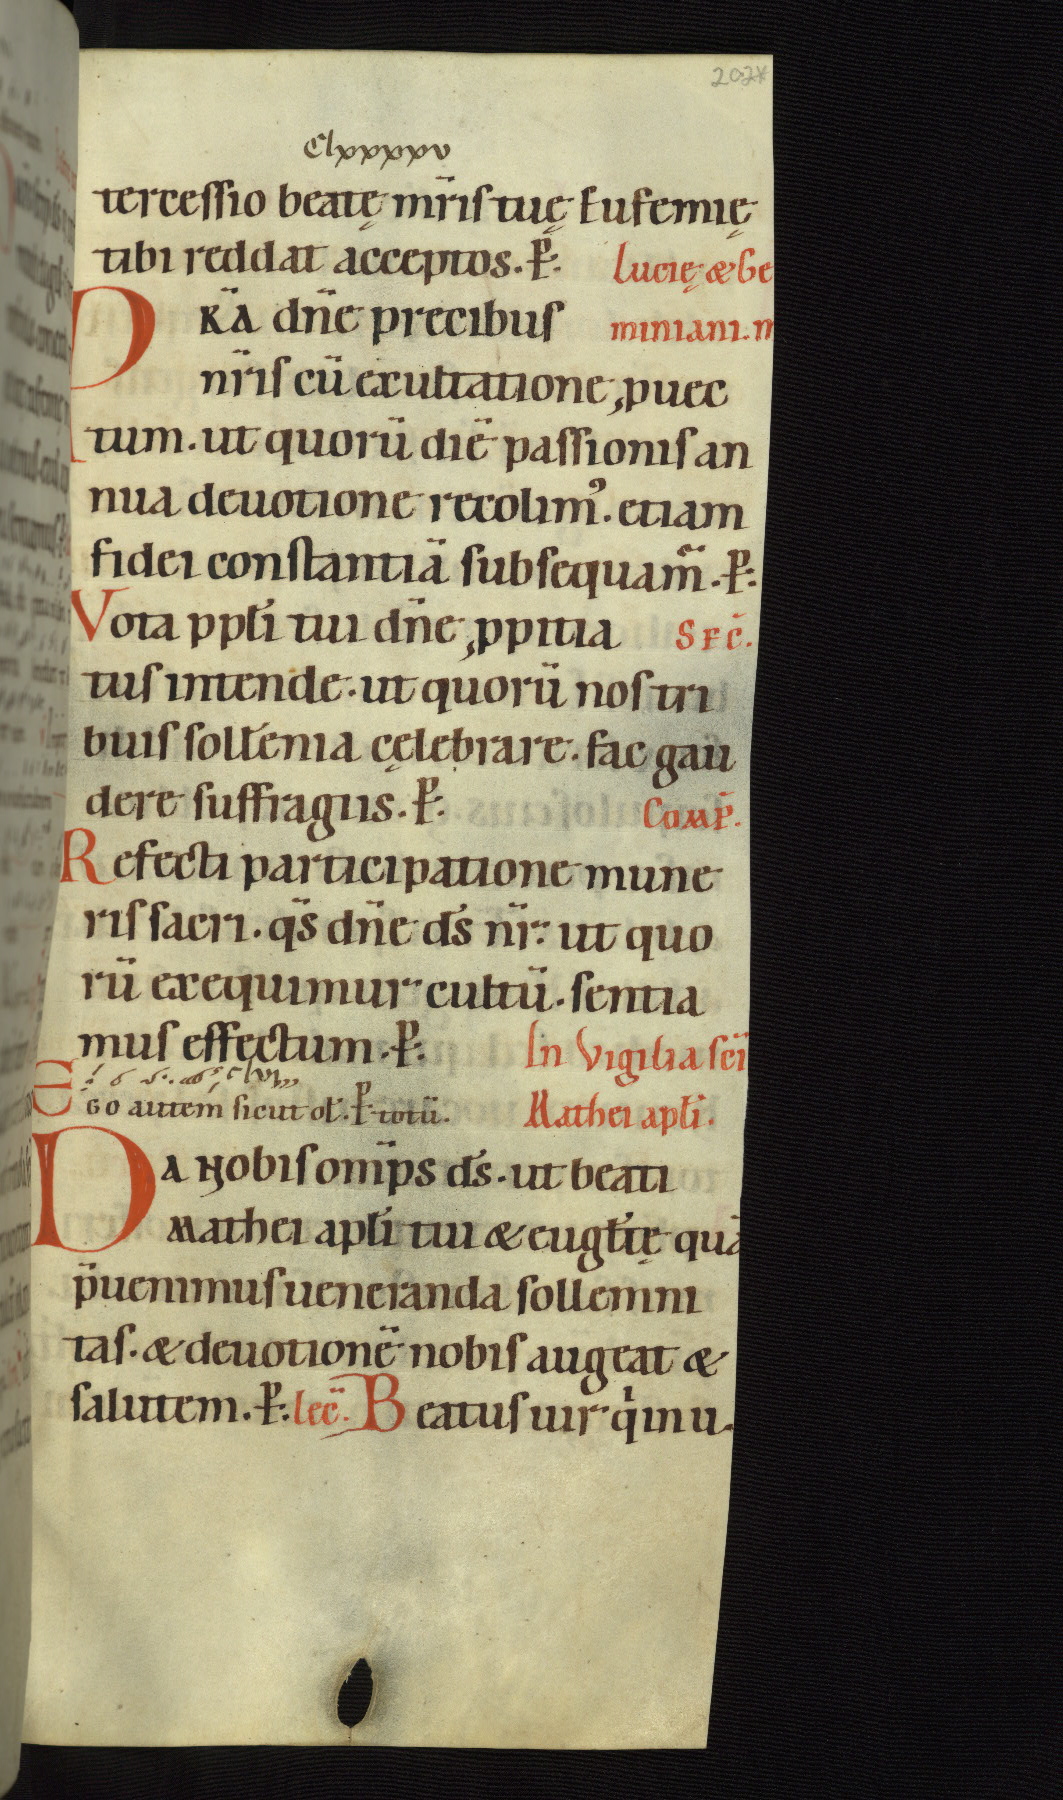 202r
Clxxxxxv
tercessio beatę mr̄is tuę Eufemię
tibi reddat acceptos. P̄.
Lucię & Ge
D kā dn̄e precibus
miniani. m
nr̄is cū exultatione ꝓuec
tum. ut quorū diē passionis an
nua deuotione recolimꝰ. etiam
fidei constantiā subsequam̄. P̄.
Vota ppl̄i tui dn̄e ꝓpitia
Sec̄.
tus intende. ut quorū nos tri
buis soll̄enia cęlebrare. fac gau
dere suffragiis. P̄.
Comp̄.
Refecti participatione mune
ris sacri. qs̄ dn̄e ds̄ nr̄. ut quo
rū exequimur cultū. sentia
mus effectum. P̄.
In Vigilia sc̄i
Ego autem sicut ol̄. P̄ totū.
Mathei apl̄i.
Da nobis om̄ps ds̄. ut beati
Mathei apl̄i tui & eugl̄tę quā
p̄uenimus ueneranda sollemni
tas. & deuotionē nobis augeat &
salutem. P̄. lec̄. Beatus uir qͥ inu.